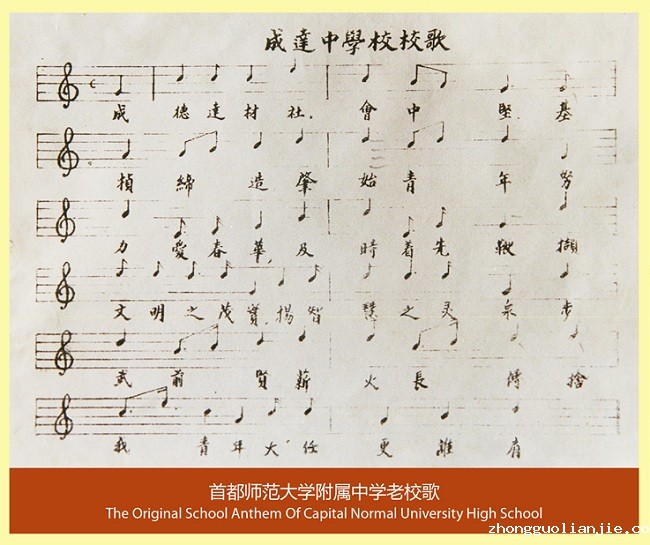 成達中學校校歌
成 德 達 材 社 會 中 堅 基
楨 締 造 肇 始 青 年 努
力 愛 春 華 及 時 着 先 鞭 擷
文 明 之 茂 實 揚 智 慧 之 灵 泉 步
武 前 賢 薪 火 長 傳 捨
我 青 年 大 任 更 誰 肩
首都师范大学附属中学老校歌
The Original School Anthem Of Capital Normal University High School
zhongguolianjie.com